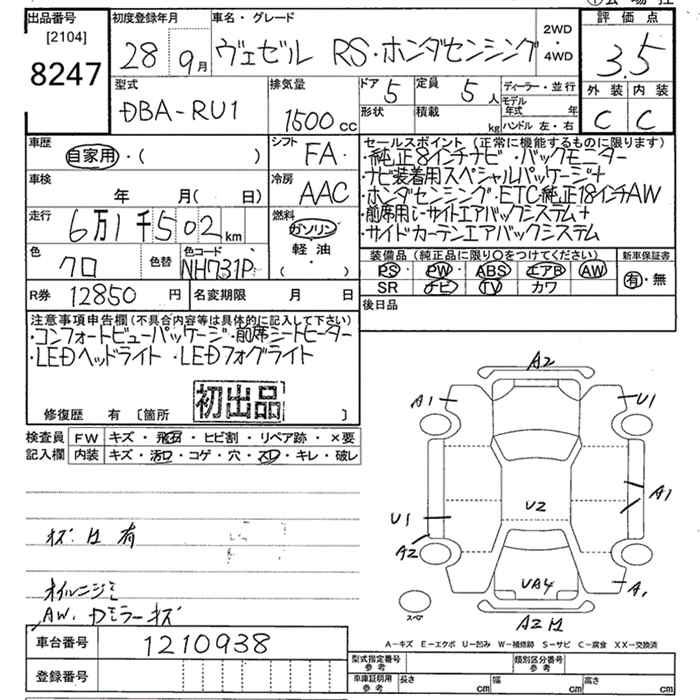 出品番号
[2104]
8247
初度登録年月
28 9月
車名・グレード
ヴェゼル RS・ホンダセンシング
2WD
・
4WD
評価点
3.5
外装 内装
C C
型式
DBA-RU1
排気量
1500 cc
ドア 5
定員 5 人
形状
積載 kg
ディーラー・並行
モデル年式 年
ハンドル 左・右
車歴
自家用・( )
シフト
FA
車検
年 月( 日)
冷房
AAC
走行
6万1千502 km
燃料
ガソリン
軽油
・( )
色
クロ
色替
色コード
NH731P
R券 12850 円
名変期限 月 日
セールスポイント(正常に機能するものに限ります)
・純正8インチナビ・バックモニター
・ナビ装着用スペシャルパッケージ+
・ホンダセンシング・ETC・純正18インチAW
・前席用i-サイドエアバックシステム+
・サイドカーテンエアバックシステム
装備品(純正品に限り○をつけてください)
PS・PW・ABS・エアB・AW
SR ナビ TV カワ
新車保証書
有・無
後日品
注意事項申告欄(不具合内容等は具体的に記入して下さい)
・コンフォートビューパッケージ・前席シートヒーター
・LEDヘッドライト・LEDフォグライト
初出品
修復歴 有 [箇所 ]
検査員 FW キズ・飛石・ヒビ割・リペア跡・×要
記入欄 内装 キズ・汚口・コゲ・穴・スレ・キレ・破レ
キズ・凹 有
オイルニジミ
AW. Dミラーキズ
車台番号 1210938
登録番号
A2
A1
U1
A1
U2
U1
A2
UA4
A
A2凹
スペア
A-キズ E-エクボ U-凹み W-補修跡 S-サビ C-腐食 XX-交換済
型式指定番号
参考
類別区分番号
参考
車庫証明用
参考
長さ cm
幅 cm
高さ cm